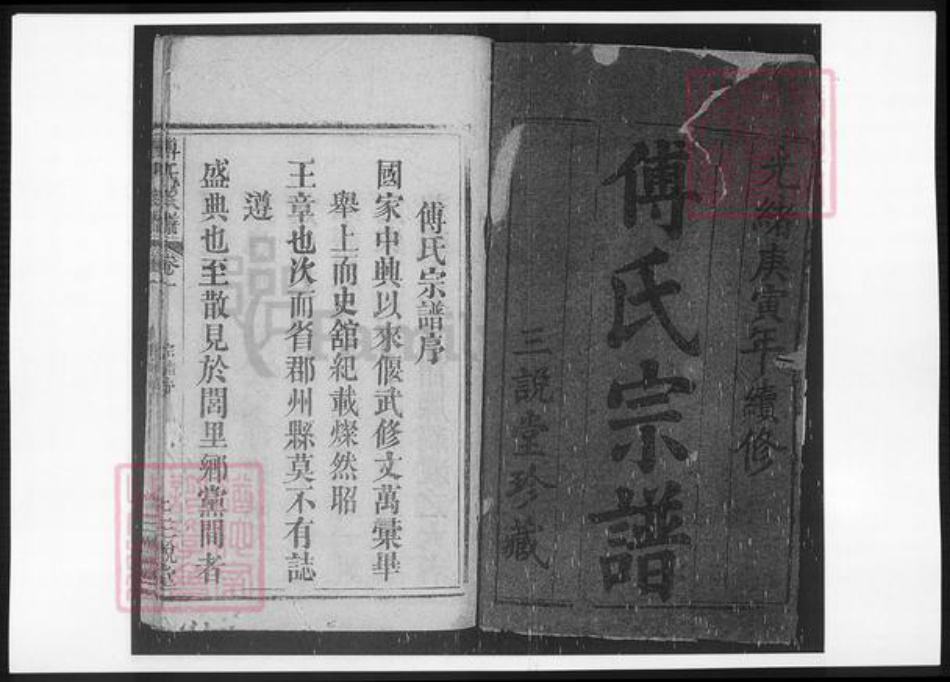 光緒庚寅年續修
傅氏宗譜
三說堂珍藏
傅氏宗譜序
國家中興以來偃武修文萬彙畢
舉上而史舘紀載燦然昭
王章也次而省郡州縣莫不有誌
遵
盛典也至散見於閭里鄉黨間者
傅氏宗譜
卷一
宗譜序
三說堂